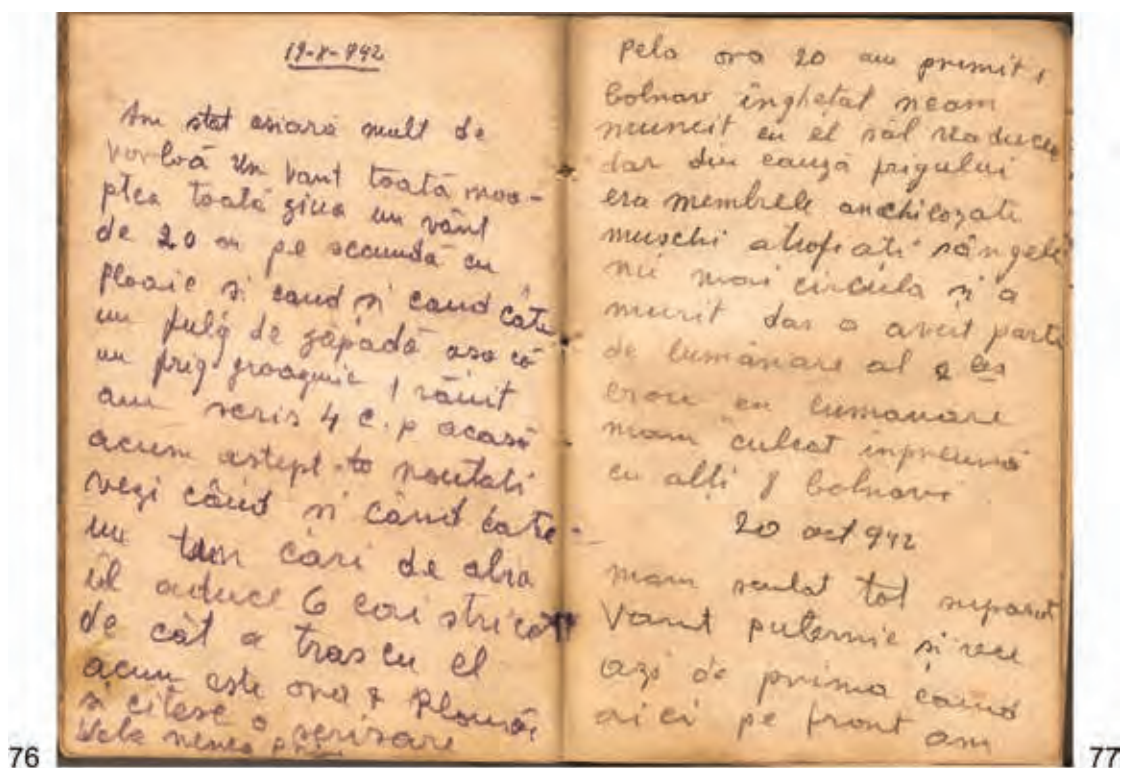 19-X-942
Am stat asiară mult de
vorbă Un vant toată noo-
ptea toată ziua un vânt
de 20 m pe secundă cu
ploaie si cand si cand câte
un fulg de zăpadă asa că
un frig groaznic 1 rănit
am scris 4 c.p acasă
acum astept noutati
vezi când si când cate
un tun cari de abia
îl aduce 6 cai
de cât a tras cu el
acum este ora Plouă
si citesc o scrisare
nenea
76
Pela ora 20 am primit 1
bolnav înghețat neam
muncit cu el săl readucem
dar din cauză frigului
era membrele anchilozate
muschi atrofiati sângele
nu mai circula și a
murit dar a avut parte
de lumânare al 2 lea
erou cu lumanare
mam culcat inpreună
cu alți 8 bolnavi
20 oct 942
mam sculat tot suparat
Vant puternic si rece
azi de prima
aici pe front am
77